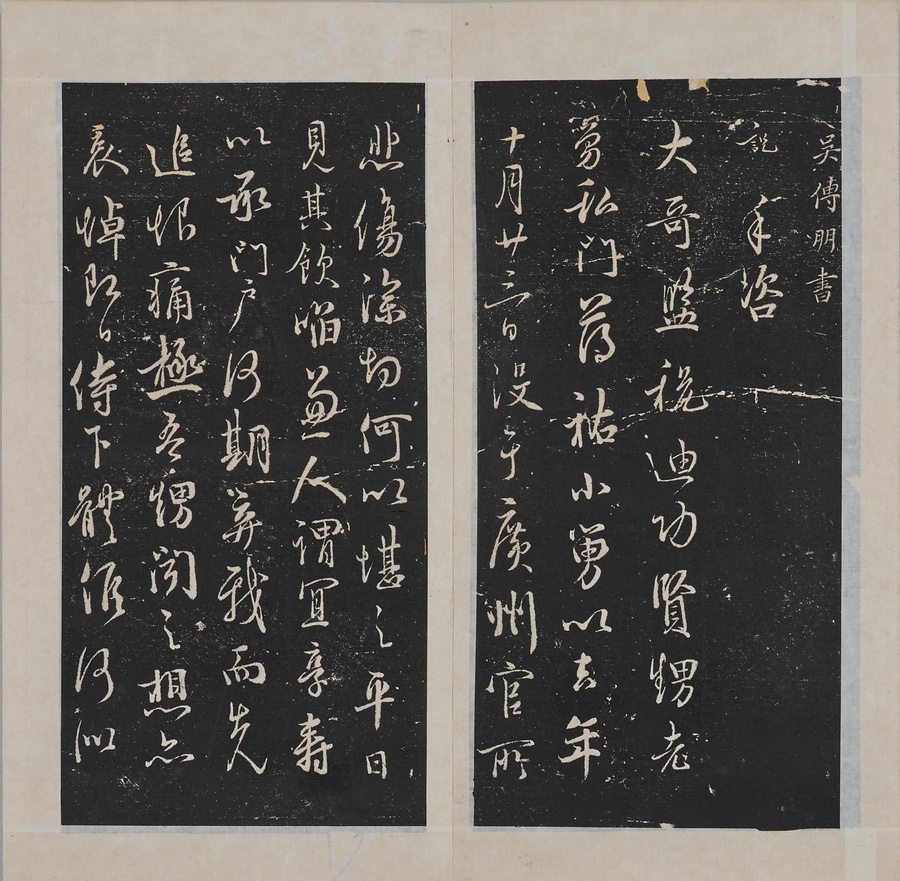 吳傅朋書
說手咨
大哥監稅迪功賢甥老
舅私門薄祐小舅以去年
十月廿三日没于廣州官所
悲傷深切何以堪之平日
見其飲啗兼人謂宜享壽
以承門户何期棄我而先
追恨痛極吾甥聞之想亦
哀悼即日侍下體候何似